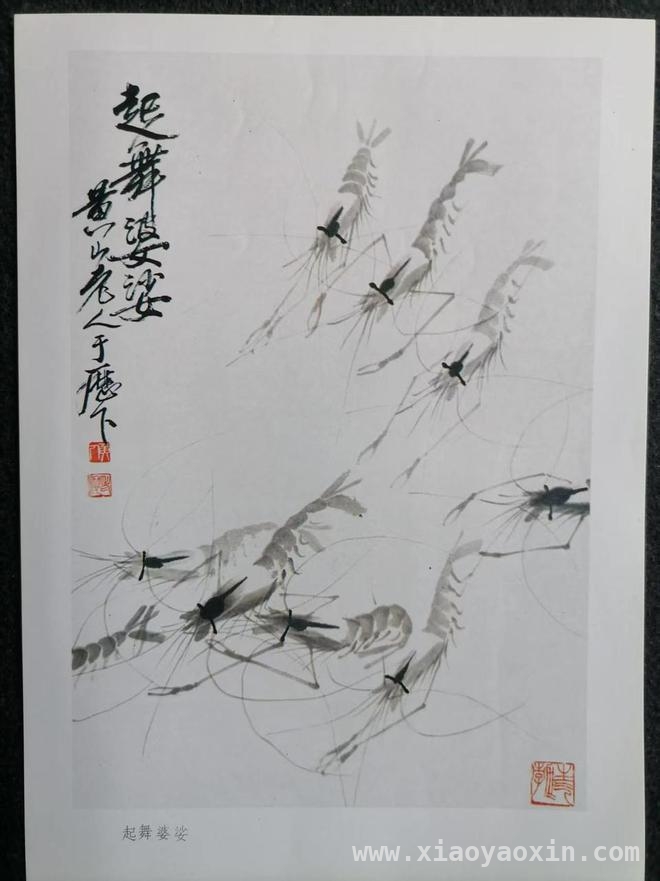 起舞婆娑
黄山老人于歷下
起舞婆娑
www.xiaoyaoxin.com